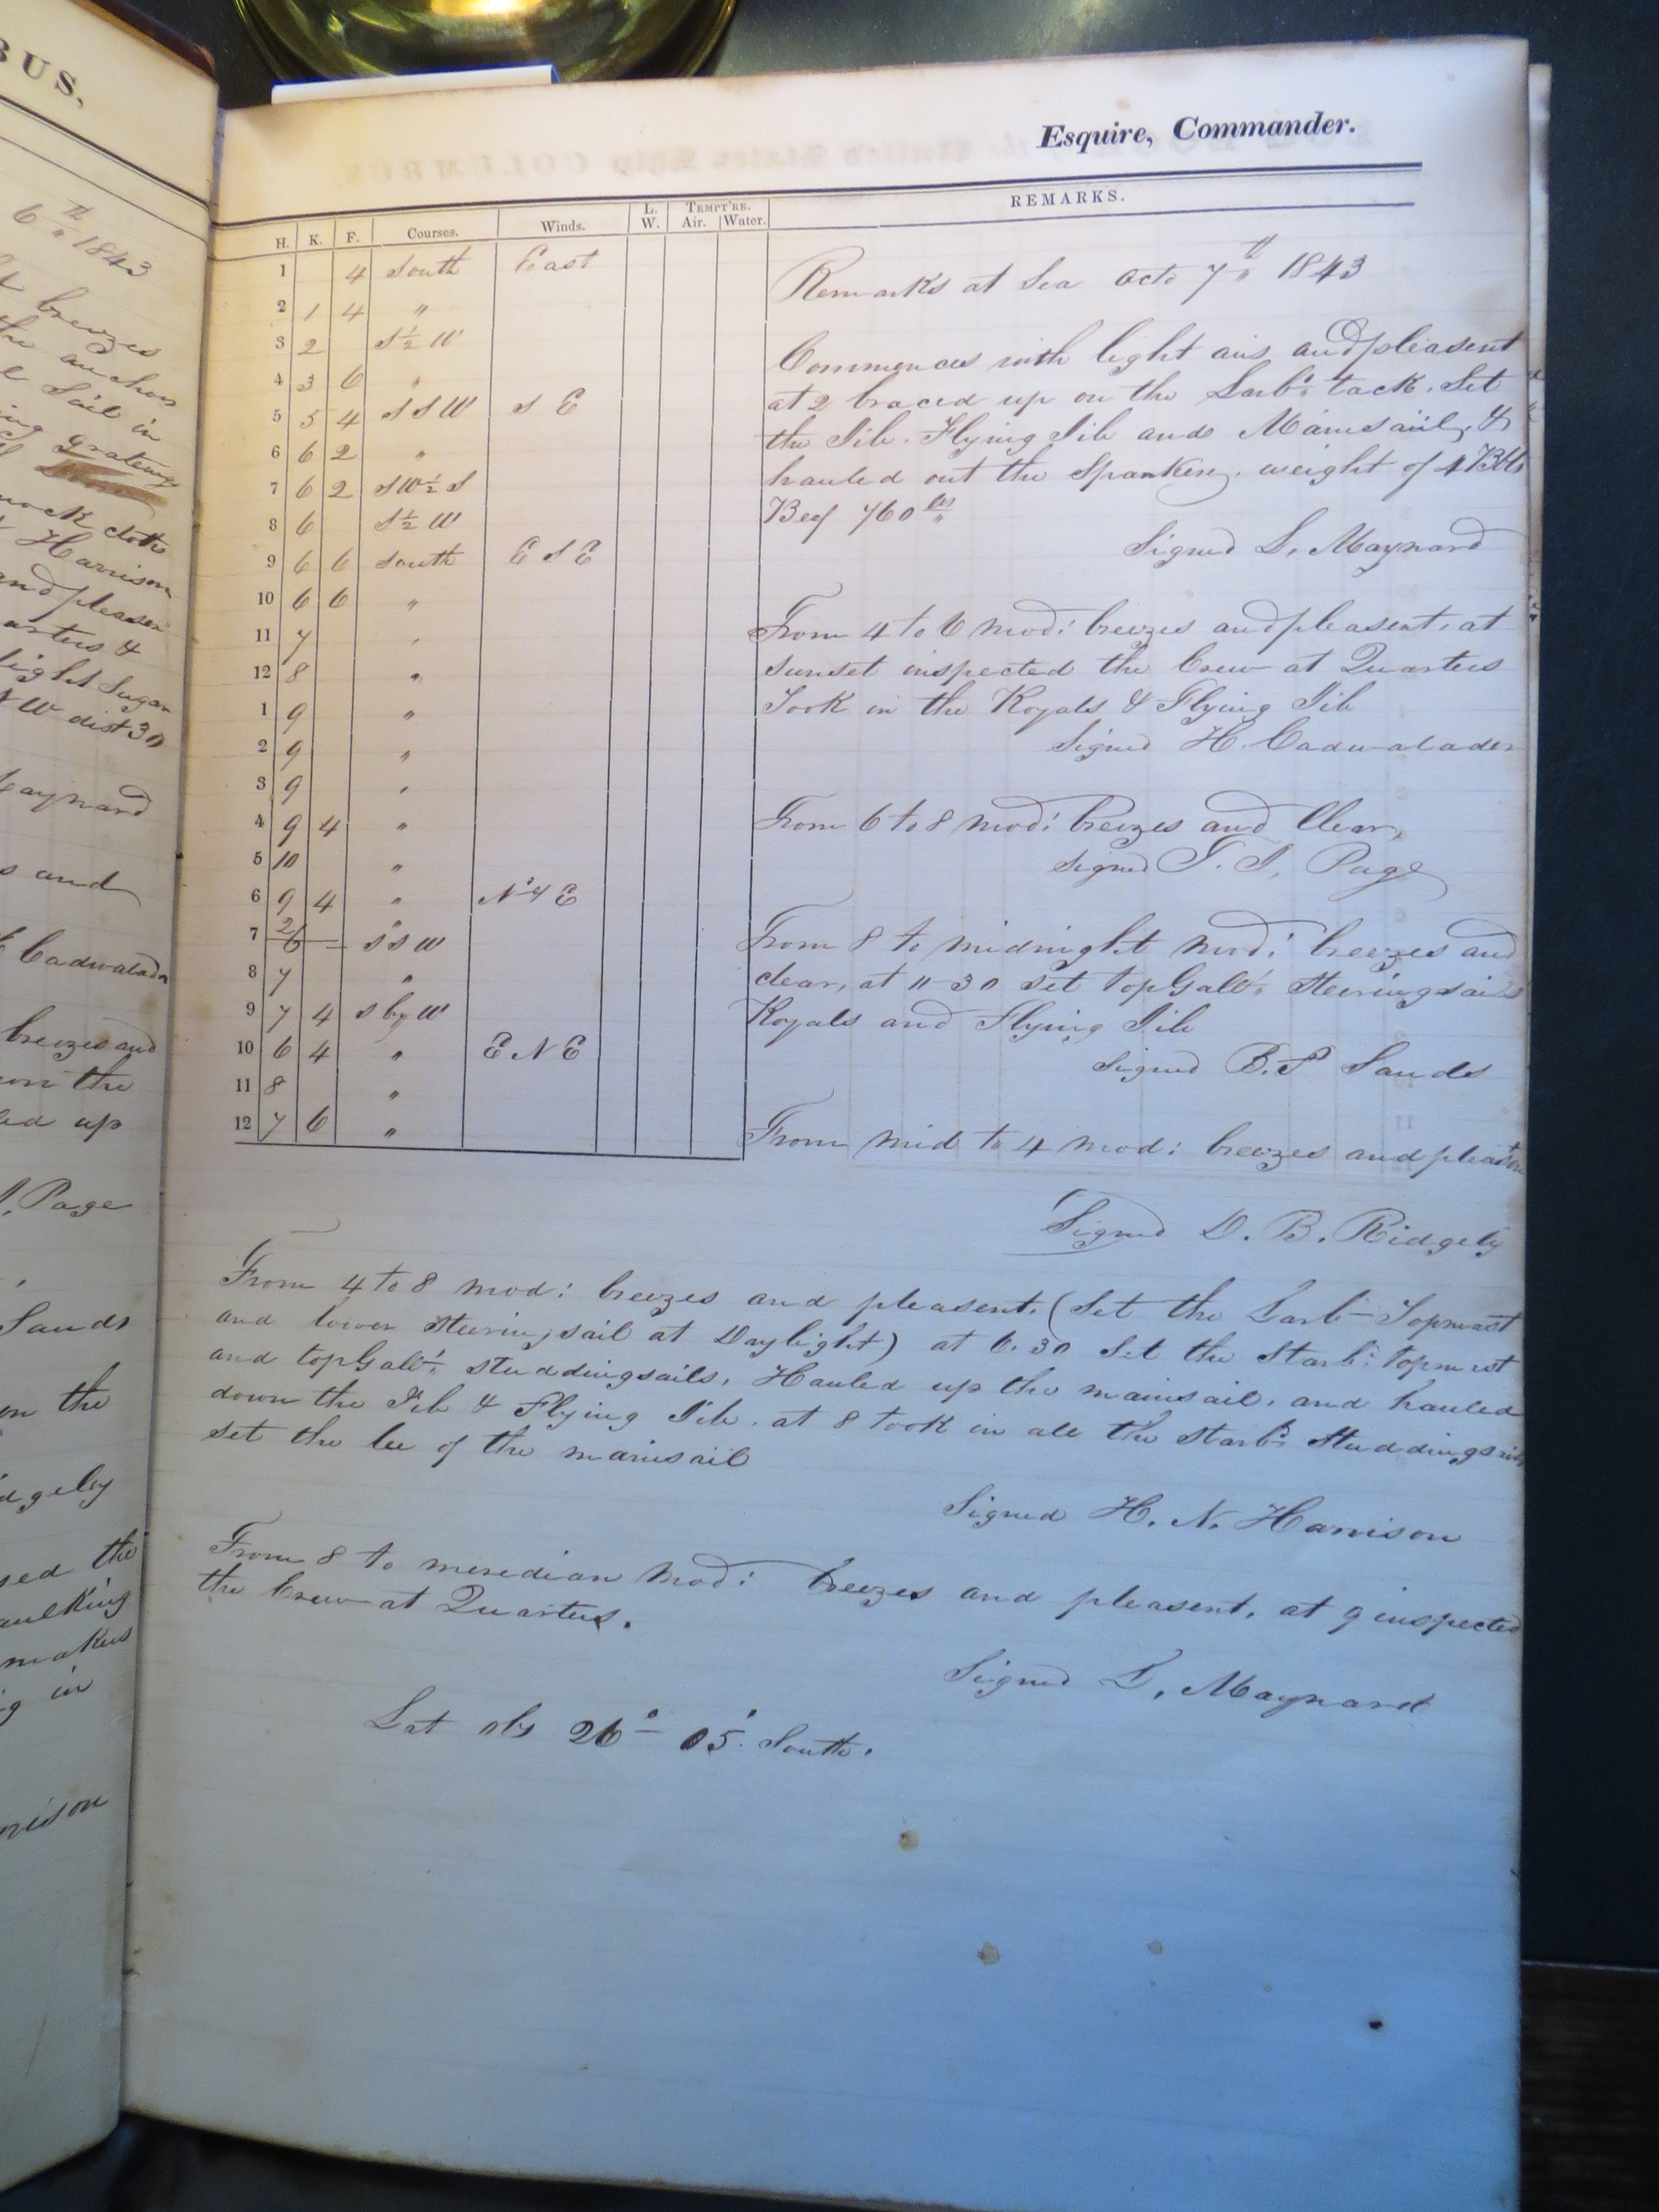 BUS.
6 th 1843
breezes
the anchor
Sail in
grating
clothes
Harrison
and pleasen
&
light Sugar
W dist 30
Maynard
s and
Cadwalader
breezes and
on the
up
Page
Sands
on the
the
caulking
makers
in
Esquire, Commander.
H. K. F. Courses. Winds. L. W. TEMPT'RE. Air. Water. REMARKS.
1 4 South East
2 1 4 "
3 2 S½W
4 3 6 "
5 5 4 SSW SE
6 6 2 "
7 6 2 SW½S
8 6 S½W
9 6 6 South ESE
10 6 6 "
11 7 "
12 8 "
1 9 "
2 9 "
3 9 "
4 9 4 "
5 10 "
6 9 4 "
7 SSW
8 7 "
9 7 4 S by W
10 6 4 " ENE
11 8 "
12 7 6 "
Remarks at Sea Octo 7th 1843
Commences with light airs and pleasent
at 2 braced up on the Larb: tack. Set
the Jib. Flying Jib and Mainsail, &
hauled out the Spanker. weight of 4 Bbls
Beef 760 lbs
Signed L. Maynard
From 4 to 6 mod: breezes and pleasent, at
sunset inspected the Crew at Quarters
Took in the Royals & Flying Jib
Signed H. Cadwalader
From 6 to 8 mod: breezes and Clear,
signed T. J. Page
From 8 to midnight mod: breezes and
clear, at 11-30 set topGallt: steeringsails
Royals and Flying Jib
Signed B. F Sands
From mid to 4 mod: breezes and pleasent
Signed D. B. Ridgely
From 4 to 8 mod: breezes and pleasent. (Set the Larb- Topmast
and lower steeringsail at Daylight) at 6.30 set the Starb: topmast
and topGallt: studdingsails, Hauled up the mainsail, and hauled
down the Jib & Flying Jib. at 8 took in all the Starb: studdingsails
set the lee of the mainsail
Signed H. N. Harrison
From 8 to meredian Mod: breezes and pleasent, at 9 inspected
the Crew at Quarters.
Signed L. Maynard
Lat obs 26°- 05' South.